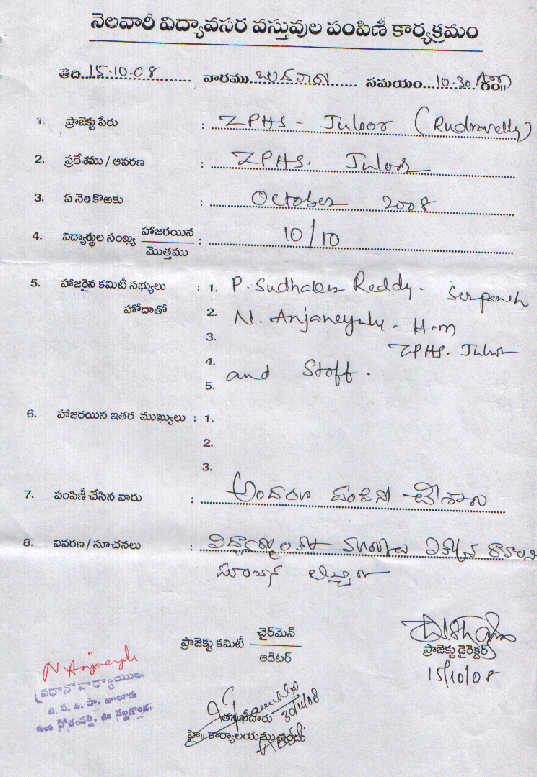 నెలవారీ విద్యావసర వస్తువుల పంపిణీ కార్యక్రమం
తేది 15-10-08 వారము బుధవారం సమయం 10-30
1. ప్రాజెక్టు పేరు : ZPHS - Juloor (Rudravelly)
2. ప్రదేశము / ఆవరణ : ZPHS. Juloor
3. ఏ నెల కొఱకు : October 2008
4. విద్యార్థుల సంఖ్య హాజరయిన / మొత్తము : 10/10
5. హాజరైన కమిటీ సభ్యులు : 1. P. Sudhakar Reddy - Serpanch
హోదాతో 2. N. Anjaneyulu - H-m
3. ZPHS. Juloor
4. and Staff.
5.
6. హాజరయిన ఇతర ముఖ్యులు : 1.
2.
3.
7. పంపిణీ చేసిన వారు : అందరూ పంపిణి చేశారు
8. వివరణ / సూచనలు :
ప్రాజెక్టు కమిటీ చైర్‌మెన్ / ఆడిటర్
ప్రాజెక్టు డైరెక్టర్
15/10/08
N Anjaneyulu
ప్రధానోపాధ్యాయులు
30/10/08